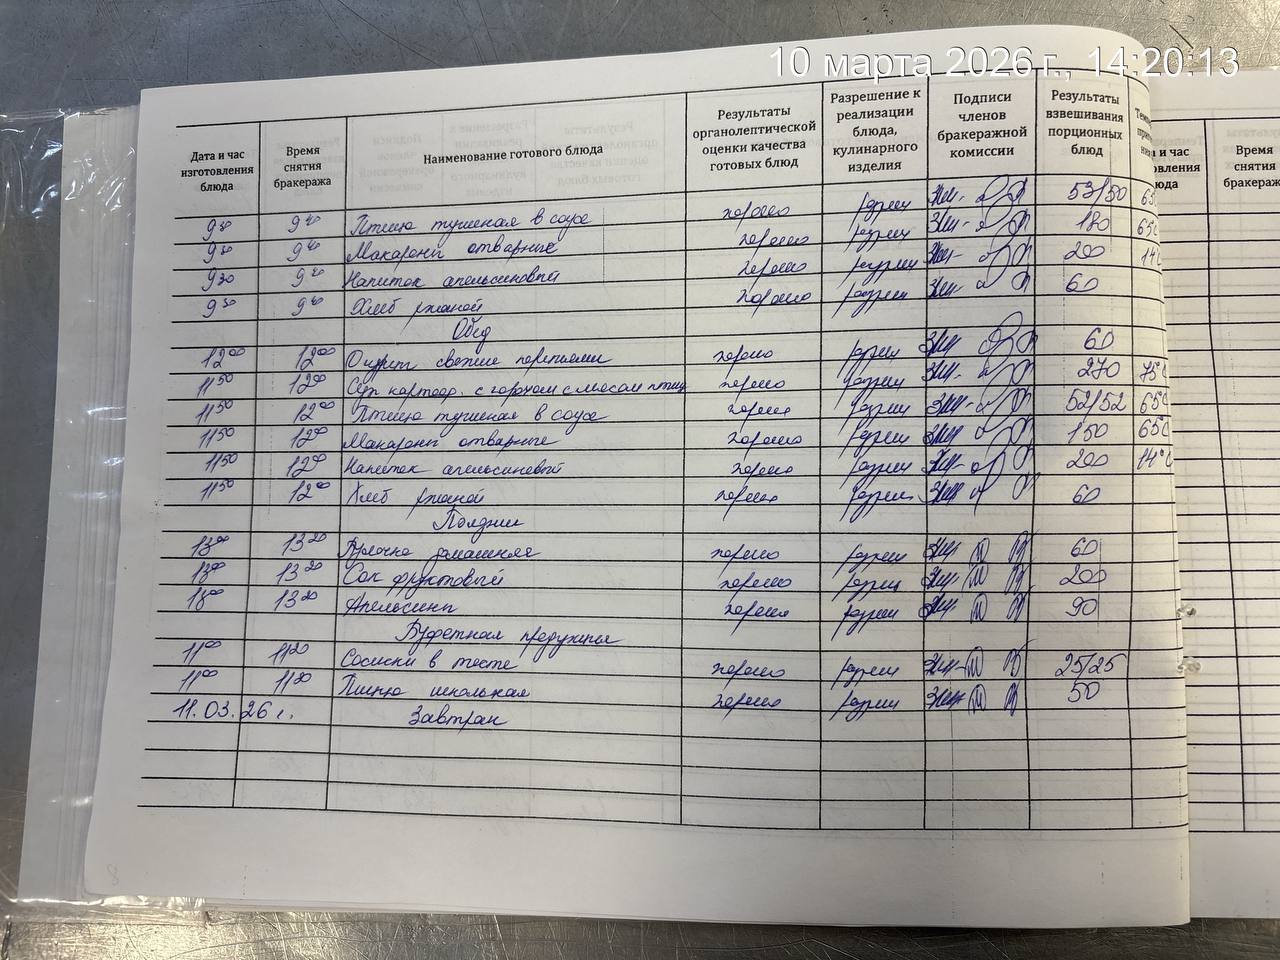 10 марта 2026 г., 14:20:13
Дата и час изготовления блюда Время снятия бракеража Наименование готового блюда Результаты органолептической оценки качества готовых блюд Разрешение к реализации блюда, кулинарного изделия Подписи членов бракеражной комиссии Результаты взвешивания порционных блюд
9 30 9 40 Птица тушеная в соусе хорошо разреш 53/50 65
9 30 9 40 Макароны отварные хорошо разреш 180 65
9 30 9 40 Напиток апельсиновый хорошо разреш 200 14
9 30 9 40 Хлеб ржаной хорошо разреш 60
Обед
12 00 12 00 Огурец свежие порциями хорошо разреш 60
11 50 12 00 Суп картоф. с горохом с мясом птиц хорошо разреш 270 75
11 50 12 00 Птица тушеная в соусе хорошо разреш 52/52 65
11 50 12 00 Макароны отварные хорошо разреш 150 65
11 50 12 00 Напиток апельсиновый хорошо разреш 200 14
11 50 12 00 Хлеб ржаной хорошо разреш 60
Полдник
13 00 13 20 Булочка домашняя хорошо разреш 60
13 00 13 20 Сок фруктовый хорошо разреш 200
13 00 13 20 Апельсины хорошо разреш 90
Буфетная продукция
11 00 11 20 Сосиски в тесте хорошо разреш 25/25
11 00 11 20 Пицца школьная хорошо разреш 50
11.03.26 г. Завтрак
Время снятия бракеража